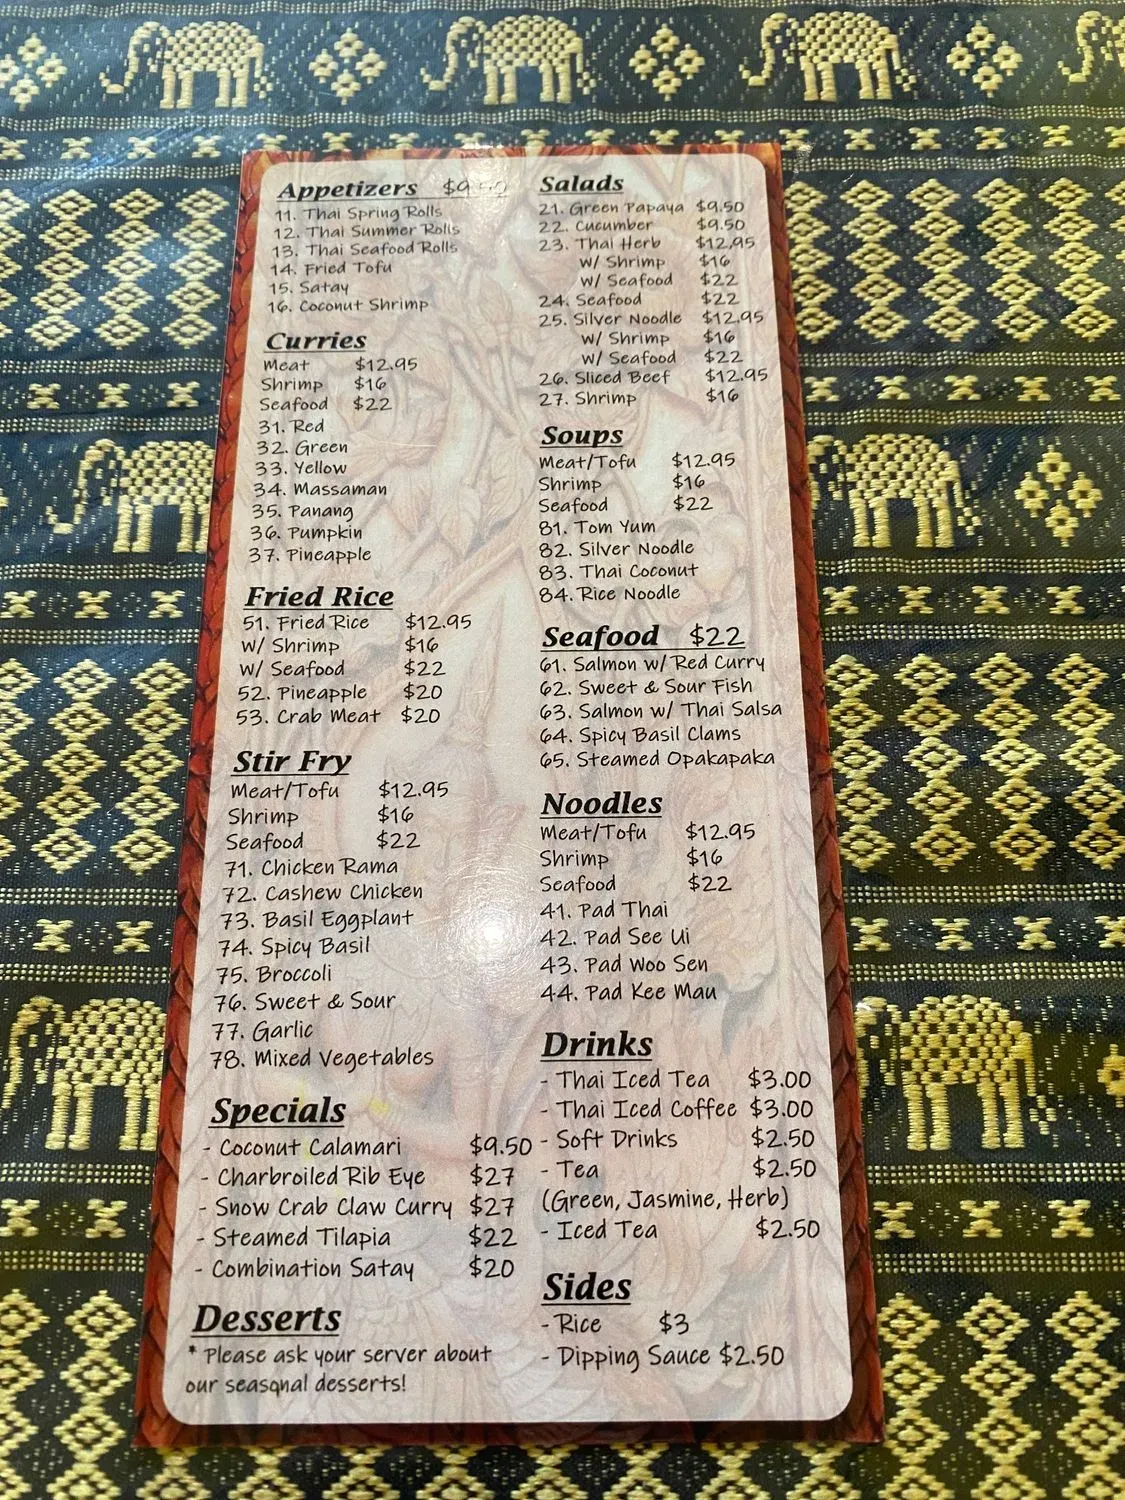 Appetizers $9.50
11. Thai Spring Rolls
12. Thai Summer Rolls
13. Thai Seafood Rolls
14. Fried Tofu
15. Satay
16. Coconut Shrimp
Curries
Meat $12.95
Shrimp $16
Seafood $22
31. Red
32. Green
33. Yellow
34. Massaman
35. Panang
36. Pumpkin
37. Pineapple
Fried Rice
51. Fried Rice $12.95
w/ Shrimp $16
w/ Seafood $22
52. Pineapple $20
53. Crab Meat $20
Stir Fry
Meat/Tofu $12.95
Shrimp $16
Seafood $22
71. Chicken Rama
72. Cashew Chicken
73. Basil Eggplant
74. Spicy Basil
75. Broccoli
76. Sweet & Sour
77. Garlic
78. Mixed Vegetables
Specials
- Coconut Calamari $9.50
- Charbroiled Rib Eye $27
- Snow Crab Claw Curry $27
- Steamed Tilapia $22
- Combination Satay $20
Desserts
* Please ask your server about
our seasonal desserts!
Salads
21. Green Papaya $9.50
22. Cucumber $9.50
23. Thai Herb $12.95
w/ Shrimp $16
w/ Seafood $22
24. Seafood $22
25. Silver Noodle $12.95
w/ Shrimp $16
w/ Seafood $22
26. Sliced Beef $12.95
27. Shrimp $16
Soups
Meat/Tofu $12.95
Shrimp $16
Seafood $22
81. Tom Yum
82. Silver Noodle
83. Thai Coconut
84. Rice Noodle
Seafood $22
61. Salmon w/ Red Curry
62. Sweet & Sour Fish
63. Salmon w/ Thai Salsa
64. Spicy Basil Clams
65. Steamed Opakapaka
Noodles
Meat/Tofu $12.95
Shrimp $16
Seafood $22
41. Pad Thai
42. Pad See Ui
43. Pad Woo Sen
44. Pad Kee Mau
Drinks
- Thai Iced Tea $3.00
- Thai Iced Coffee $3.00
- Soft Drinks $2.50
- Tea $2.50
(Green, Jasmine, Herb)
- Iced Tea $2.50
Sides
- Rice $3
- Dipping Sauce $2.50